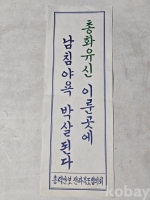 총화유신 이룬곳에
남침야욕 박살된다
kobay